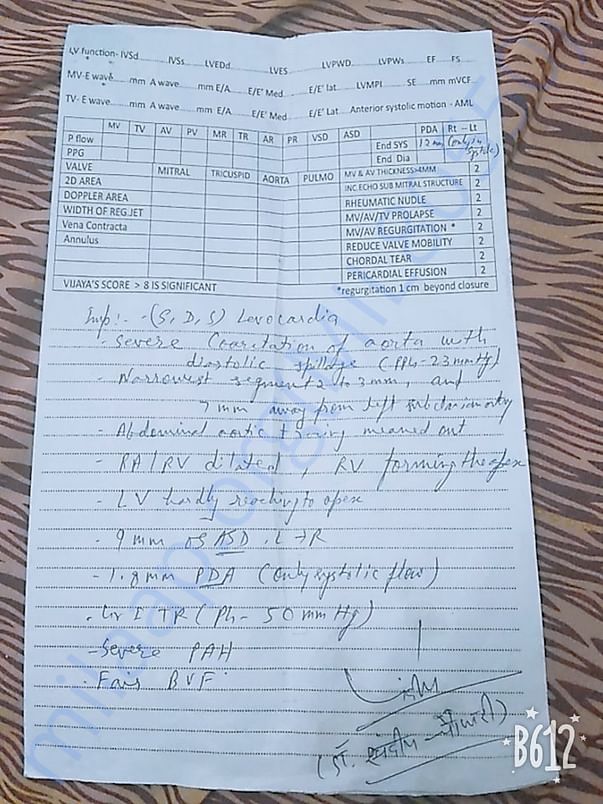 LV function- IVSd........ IVSs........ LVEDd........ LVES........ LVPWD........ LVPWs........ EF........ FS........
MV-E wave........mm A wave........mm E/A........ E/E' Med........ E/E' lat........ LVMPI........ SE........mm mVCF........
TV- E wave........mm A wave........mm E/A........ E/E' Med........ E/E' Lat........ Anterior systolic motion - AML
MV TV AV PV MR TR AR PR VSD ASD PDA Rt - Lt
P flow End SYS (only in systole)
PPG End Dia
VALVE MITRAL TRICUSPID AORTA PULMO MV & AV THICKNESS>4MM 2
2D AREA INC.ECHO SUB MITRAL STRUCTURE 2
DOPPLER AREA RHEUMATIC NUDLE 2
WIDTH OF REG.JET MV/AV/TV PROLAPSE 2
Vena Contracta MV/AV REGURGITATION * 2
Annulus REDUCE VALVE MOBILITY 2
CHORDAL TEAR 2
PERICARDIAL EFFUSION 2
VIJAYA'S SCORE > 8 IS SIGNIFICANT *regurgitation 1 cm beyond closure
Imp:- - (S, D, S) Levocardia
- Severe Coarctation of aorta with
diastolic spillage (PPG - 23 mmHg)
- Narrowest segment 2 to 3 mm, and
7 mm away from left subclavian artery
- Abdominal aortic
- RA/RV dilated, RV forming the apex
- LV hardly reaching to apex
- 9 mm OS ASD, L→R
- 1.8 mm PDA (only systolic flow)
- Gr I TR (Ph- 50 mmHg)
- Severe PAH
- Fair BVF
(डॉ.
milaap.org
B612